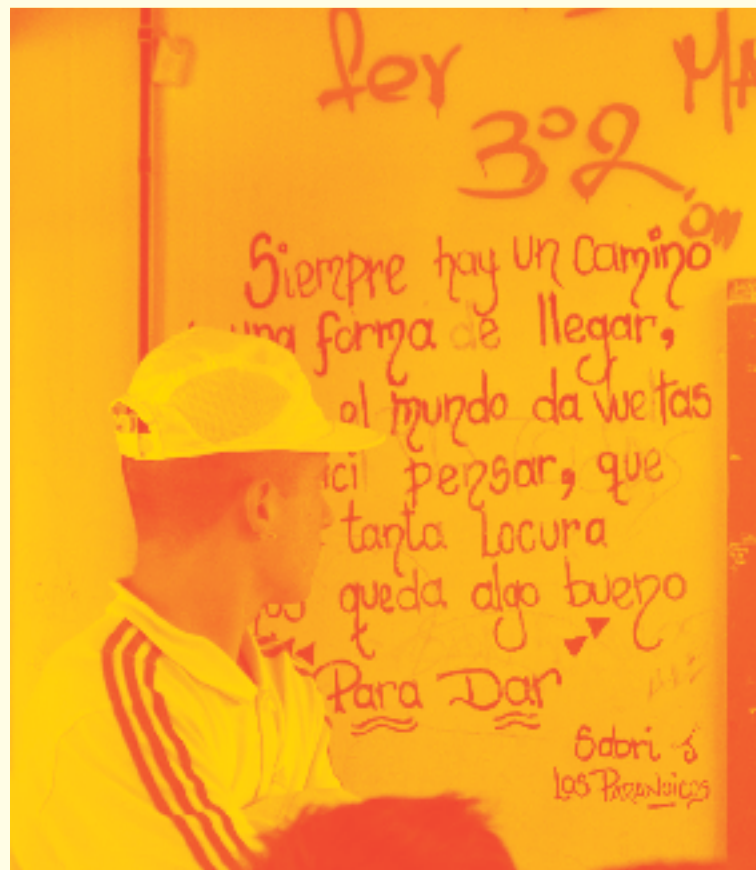 fer
3º2
Siempre hay un camino
una forma de llegar,
el mundo da vueltas
pensar, que
tanta Locura
queda algo bueno
Para Dar
Satori y
Los Paranoicos